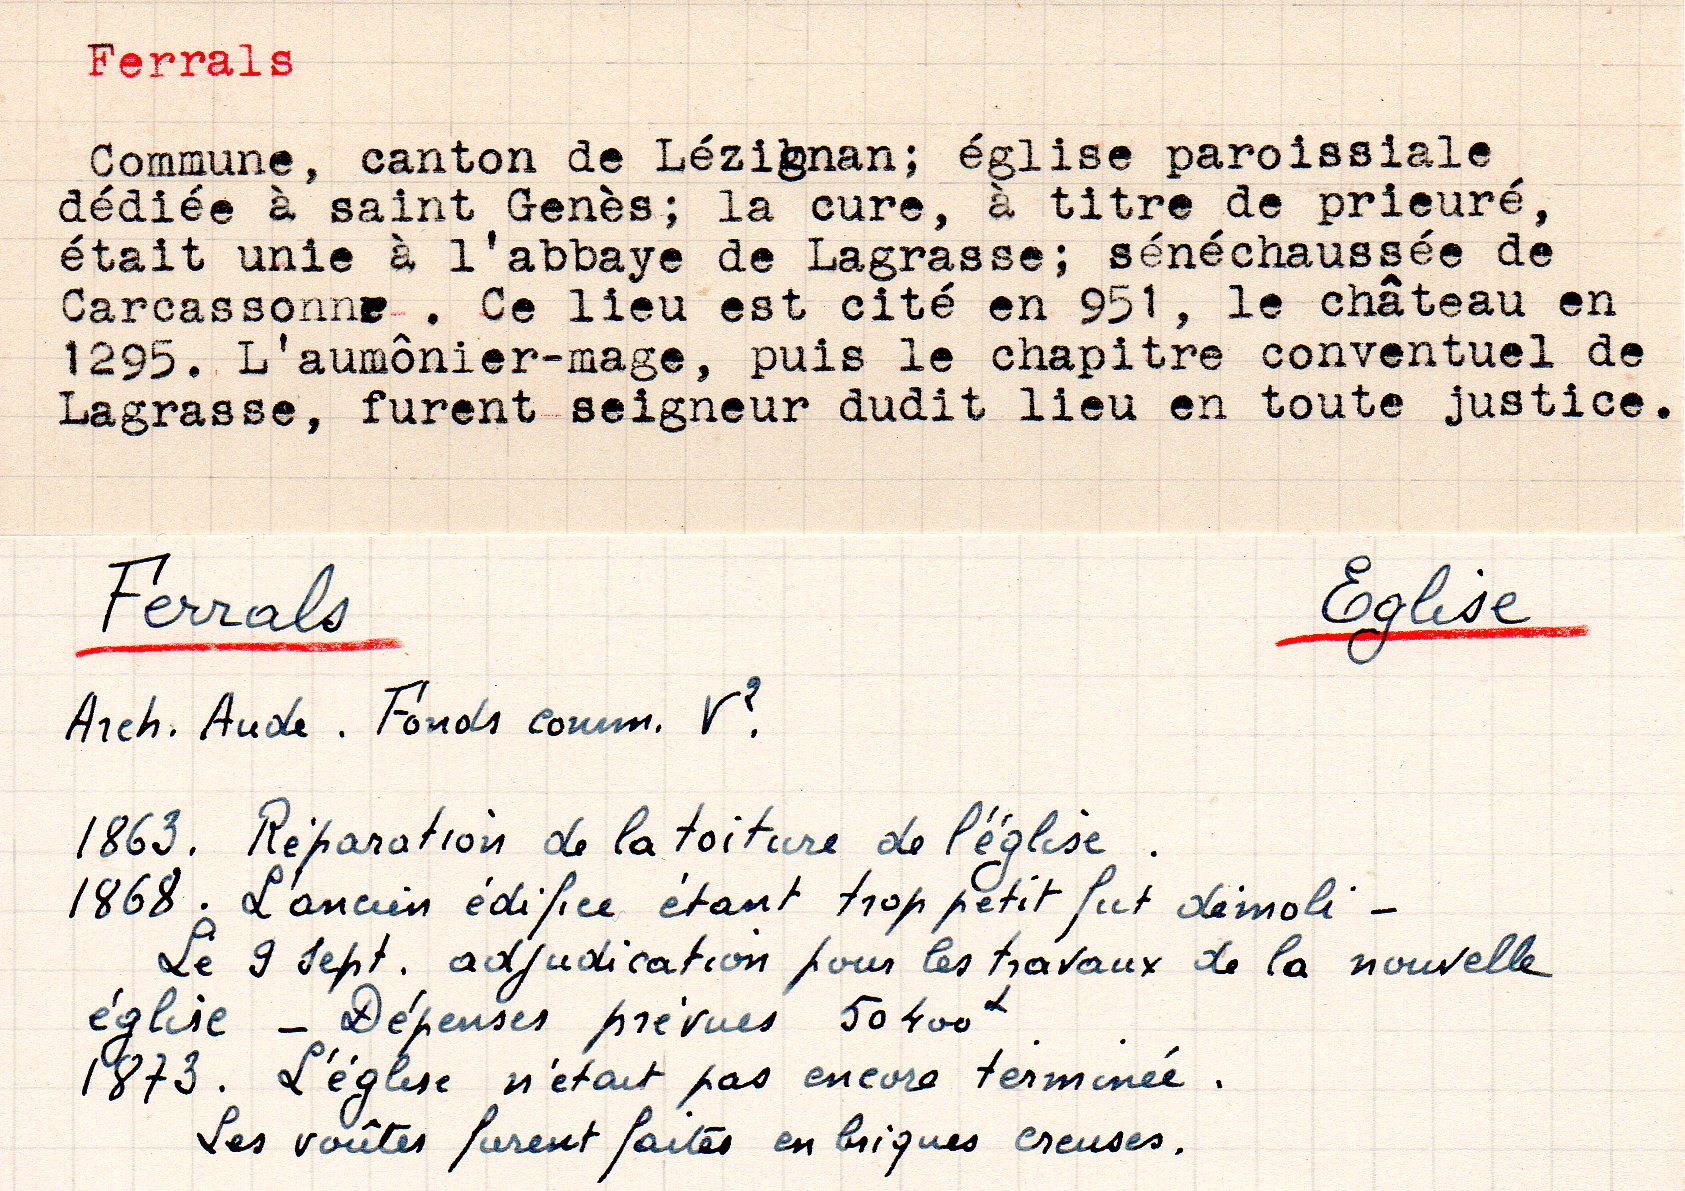 Ferrals
Commune, canton de Lézignan; église paroissiale
dédiée à saint Genès; la cure, à titre de prieuré,
était unie à l'abbaye de Lagrasse; sénéchaussée de
Carcassonne . Ce lieu est cité en 951, le château en
1295. L'aumônier-mage, puis le chapitre conventuel de
Lagrasse, furent seigneur dudit lieu en toute justice.
Ferrals Eglise
Arch. Aude. Fonds comm. V².
1863. Réparation de la toiture de l'église.
1868. L'ancien édifice étant trop petit fut démoli –
Le 9 sept. adjudication pour les travaux de la nouvelle
église – Dépenses prévues 50400
1873. L'église n'était pas encore terminée.
Les voûtes furent faites en briques creuses.